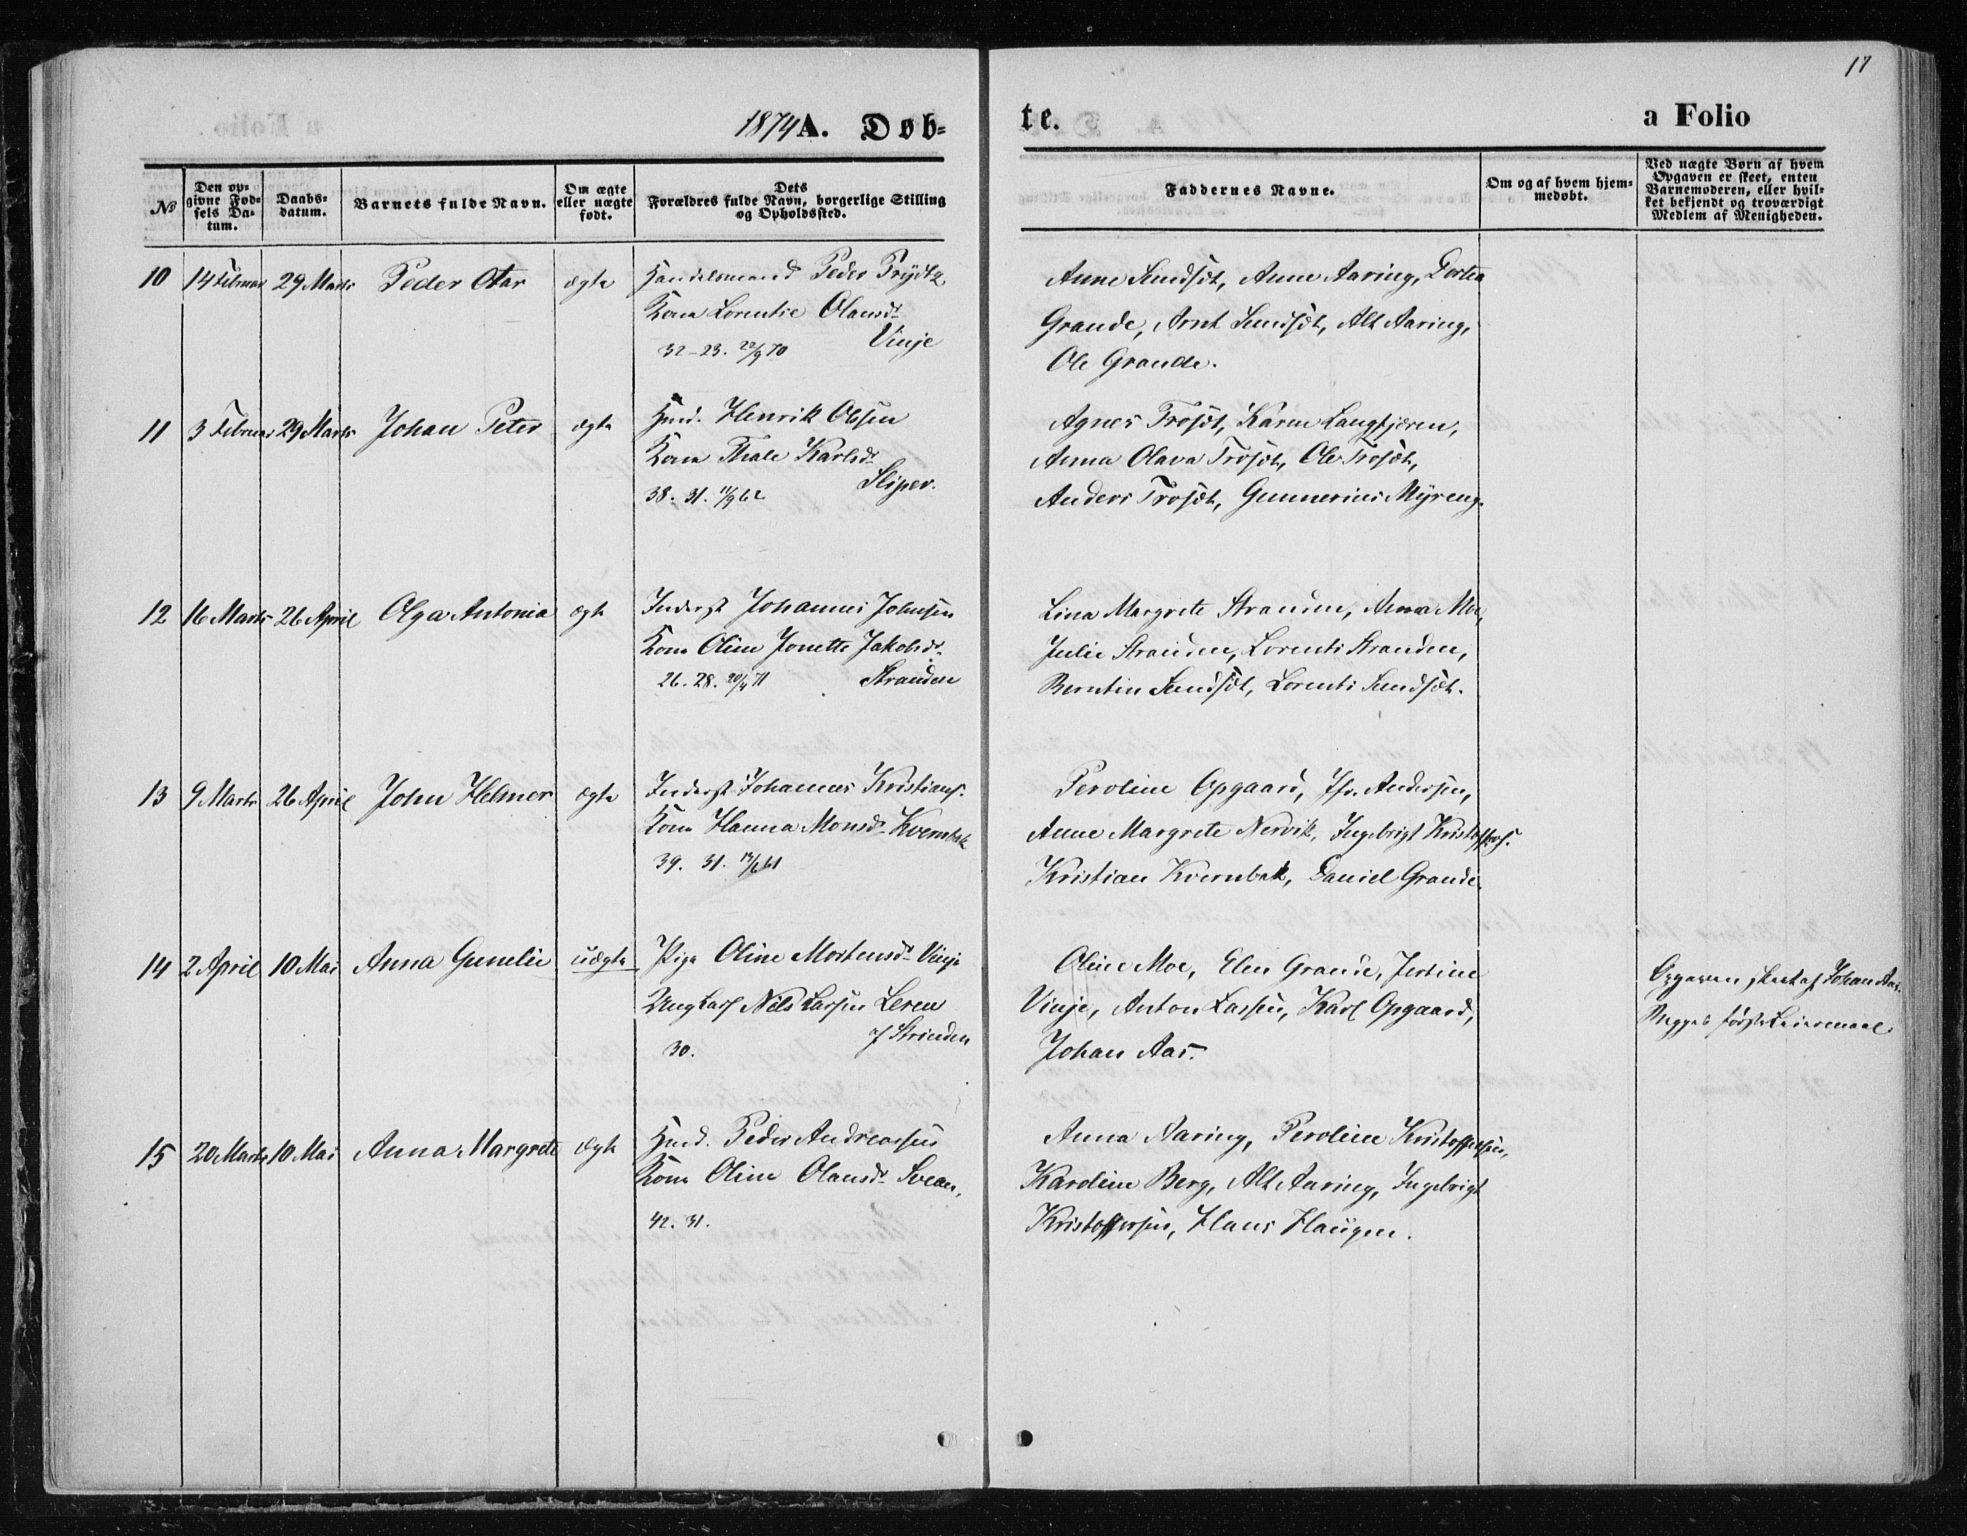 17
1874 A. Døb-
te.
a Folio
№
Den op-
givne Fød-
sels Da-
tum.
Daabs-
datum.
Barnets fulde Navn.
Om ægte
eller uægte
født.
Dets
Forældres fulde Navn, borgerlige Stilling
og Opholdssted.
Faddernes Navne.
Om og af hvem hjem-
medøbt.
Ved uægte Børn af hvem
Opgaven er skeet, enten
Barnemoderen, eller hvil-
ket bekjendt og troværdigt
Medlem af Menigheden.
10 14 Februar 29 Marts Peder Otar ægte Handelsmand Peder Prydtz
Kone Lorentse Olausdt
Vinje
32-23. 22/9 70
Anne Sundsøt, Anne Aaring, Dortea
Grande, Arnt Sundsøt, Alt Aaring,
Ole Grande.
11 3 Februar 29 Marts Johan Peter ægte Husd. Henrik Olsen
Kone Thale Karlsdt
Sliper.
38. 31. 11/9 62
Agnes Trøsøt, Karen Langkjøren,
Anna Olava Trøsøt, Ole Trøsøt,
Anders Trøsøt, Gunnerius Myreng.
12 16 Marts 26 April Olga Antonia ægte Inderst Johannes Johnsen
Kone Oline Jonette Jakobsdt
Stranden
26. 28. 20/4 71
Lina Margrete Stranden, Anna Moe,
Julie Stranden, Lorents Stranden,
Berntin Sundsøt, Lorents Sundsøt.
13 9 Marts 26 April John Helmer ægte Inderst Johannes Kristians.
Kone Hanna Monsdt Kvernbek
39. 31. 14/6 61
Peroline Opgaard, Jfr. Andersen,
Anne Margrete Nervik, Ingebrigt Kristoffers.
Kristian Kvernbek, Daniel Grande.
14 2 April 10 Mai Anna Gunelie uægte Pige Oline Mortensdt Vinje
Ungkarl Nils Larsen Leren
af Strinden
30.
Oline Moe, Elen Grande, Jertine
Vinje, Anton Lassen, Karl Opgaard,
Johan Aas.
Opgaven skeet af Johan Aas.
Begges første Leiermaal.
15 20 Marts 10 Mai Anna Margrete ægte Husd. Peder Andreassen
Kone Oline Olausdt Svean,
42. 31.
Anna Aaring, Peroline Kristoffersen,
Karoline Berg, Alt Aaring, Ingebrigt
Kristoffersen, Hans Haugen.